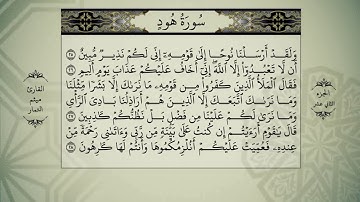 سُورَةُ هُودٍ
وَلَقَدْ أَرْسَلْنَا نُوحًا إِلَىٰ قَوْمِهِۦٓ إِنِّى لَكُمْ نَذِيرٌ مُّبِينٌ ٢٥
أَن لَّا تَعْبُدُوٓا۟ إِلَّا ٱللَّهَ ۖ إِنِّىٓ أَخَافُ عَلَيْكُمْ عَذَابَ يَوْمٍ أَلِيمٍ ٢٦
فَقَالَ ٱلْمَلَأُ ٱلَّذِينَ كَفَرُوا۟ مِن قَوْمِهِۦ مَا نَرَىٰكَ إِلَّا بَشَرًا مِّثْلَنَا
وَمَا نَرَىٰكَ ٱتَّبَعَكَ إِلَّا ٱلَّذِينَ هُمْ أَرَاذِلُنَا بَادِىَ ٱلرَّأْىِ
وَمَا نَرَىٰ لَكُمْ عَلَيْنَا مِن فَضْلٍۭ بَلْ نَظُنُّكُمْ كَٰذِبِينَ ٢٧
قَالَ يَٰقَوْمِ أَرَءَيْتُمْ إِن كُنتُ عَلَىٰ بَيِّنَةٍ مِّن رَّبِّى وَءَاتَىٰنِى رَحْمَةً مِّنْ
عِندِهِۦ فَعُمِّيَتْ عَلَيْكُمْ أَنُلْزِمُكُمُوهَا وَأَنتُمْ لَهَا كَٰرِهُونَ ٢٨
الجزء
الثاني عشر
القارئ
ميثم
التمار